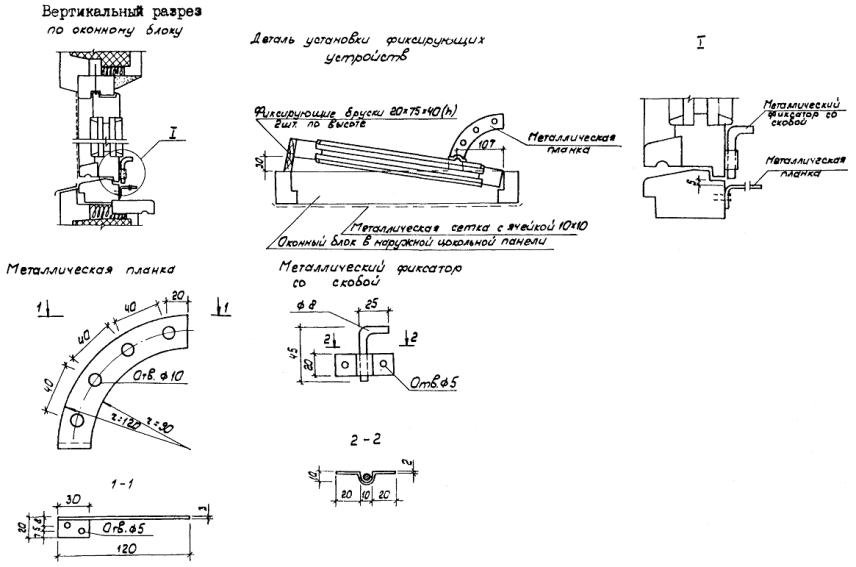 Вертикальный разрез
по оконному блоку
I
Деталь установки фиксирующих
устройств
Фиксирующие бруски 20×75×40(h)
2шт. по высоте
30
107
Металлическая
планка
Металлическая сетка с ячейкой 10×10
Оконный блок в наружной цокольной панели
I
Металлический
фиксатор со
скобой
Металлическая
планка
5
Металлическая планка
1 1
20
40
40
40
Отв. ф10
r=120
r=90
1-1
30
3
20
8
5
7
Отв. ф5
120
Металлический фиксатор
со скобой
ф8
25
2 2
45
20
Отв. ф5
2-2
10
2
20 10 20